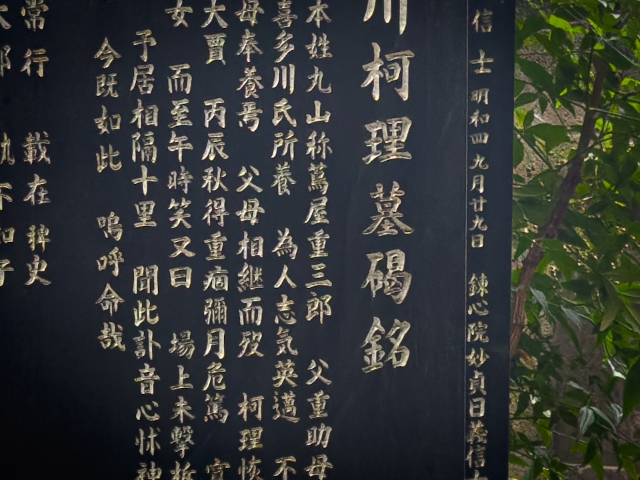 信士 明和四 九月廿九日 錬心院妙貞日義信女
川柯理墓碣銘
本姓丸山称蔦屋重三郎 父重助母
喜多川氏所養 為人志気英邁 不
母奉養焉 父母相継而歿 柯理恢
大賈 丙辰秋得重痼弥月危篤 宮
女 而至午時笑又曰 場上未撃柝
予居相隔十里 聞此訃音心怵神
今既如此 嗚呼命哉
常行 載在稗史